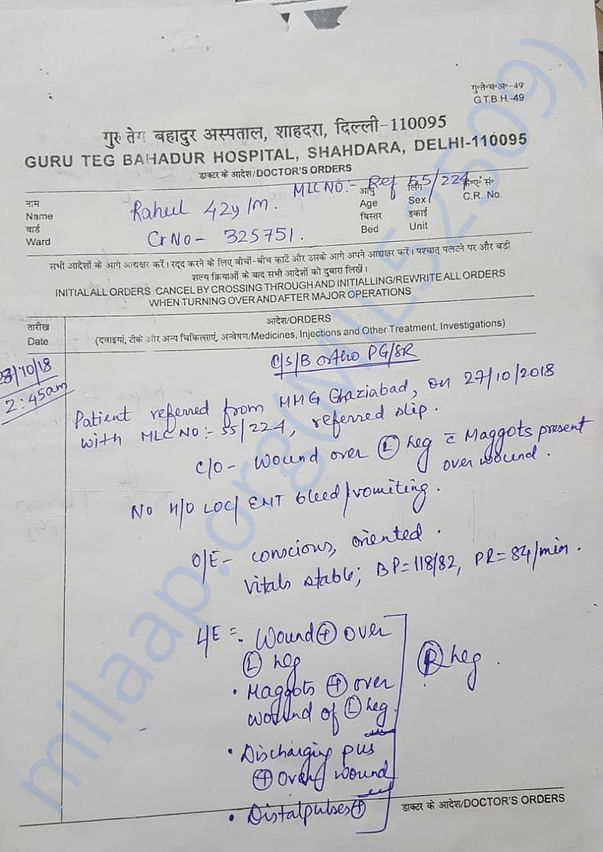 गु॰ते॰ब॰अ॰-49
G.T.B.H.-49
गुरु तेग बहादुर अस्पताल, शाहदरा, दिल्ली-110095
GURU TEG BAHADUR HOSPITAL, SHAHDARA, DELHI-110095
डाक्टर के आदेश/DOCTOR'S ORDERS
MLC NO:- Ref 55/224
नाम
Name Rahul 42y/m. आयु Age लिंग Sex C.R. No.
वार्ड
Ward Cr No - 325751. बिस्तर Bed इकाई Unit
सभी आदेशों के आगे आद्यक्षर करें। रद्द करने के लिए बीचों-बीच काटें और उसके आगे अपने आद्यक्षर करें। पश्चात् पलटने पर और बड़ी
शल्य क्रियाओं के बाद सभी आदेशों को दुबारा लिखें।
INITIAL ALL ORDERS CANCEL BY CROSSING THROUGH AND INITIALLING/REWRITE ALL ORDERS
WHEN TURNING OVER AND AFTER MAJOR OPERATIONS
तारीख
Date
आदेश/ORDERS
(दवाइयां, टीके और अन्य चिकित्साएं, अन्वेषण/Medicines, Injections and Other Treatment, Investigations)
28/10/18
2:45am
C/S/B ortho PG/SR
Patient referred from MMG Ghaziabad, on 27/10/2018
with MLC NO:- 55/224, referred slip.
C/O - Wound over Ⓛ leg c̄ Maggots present
over wound.
No H/O LOC/ENT bleed/vomiting.
O/E - conscious, oriented.
Vitals stable; BP=118/82, PR=84/min.
L/E =. Wound ⊕ over
Ⓛ leg
• Maggots ⊕ over
wound of Ⓛ leg.
• Discharging pus
⊕ over wound
• Distal pulses ⊕
Ⓡ leg.
डाक्टर के आदेश/DOCTOR'S ORDERS
milaap.org(MIL52509)